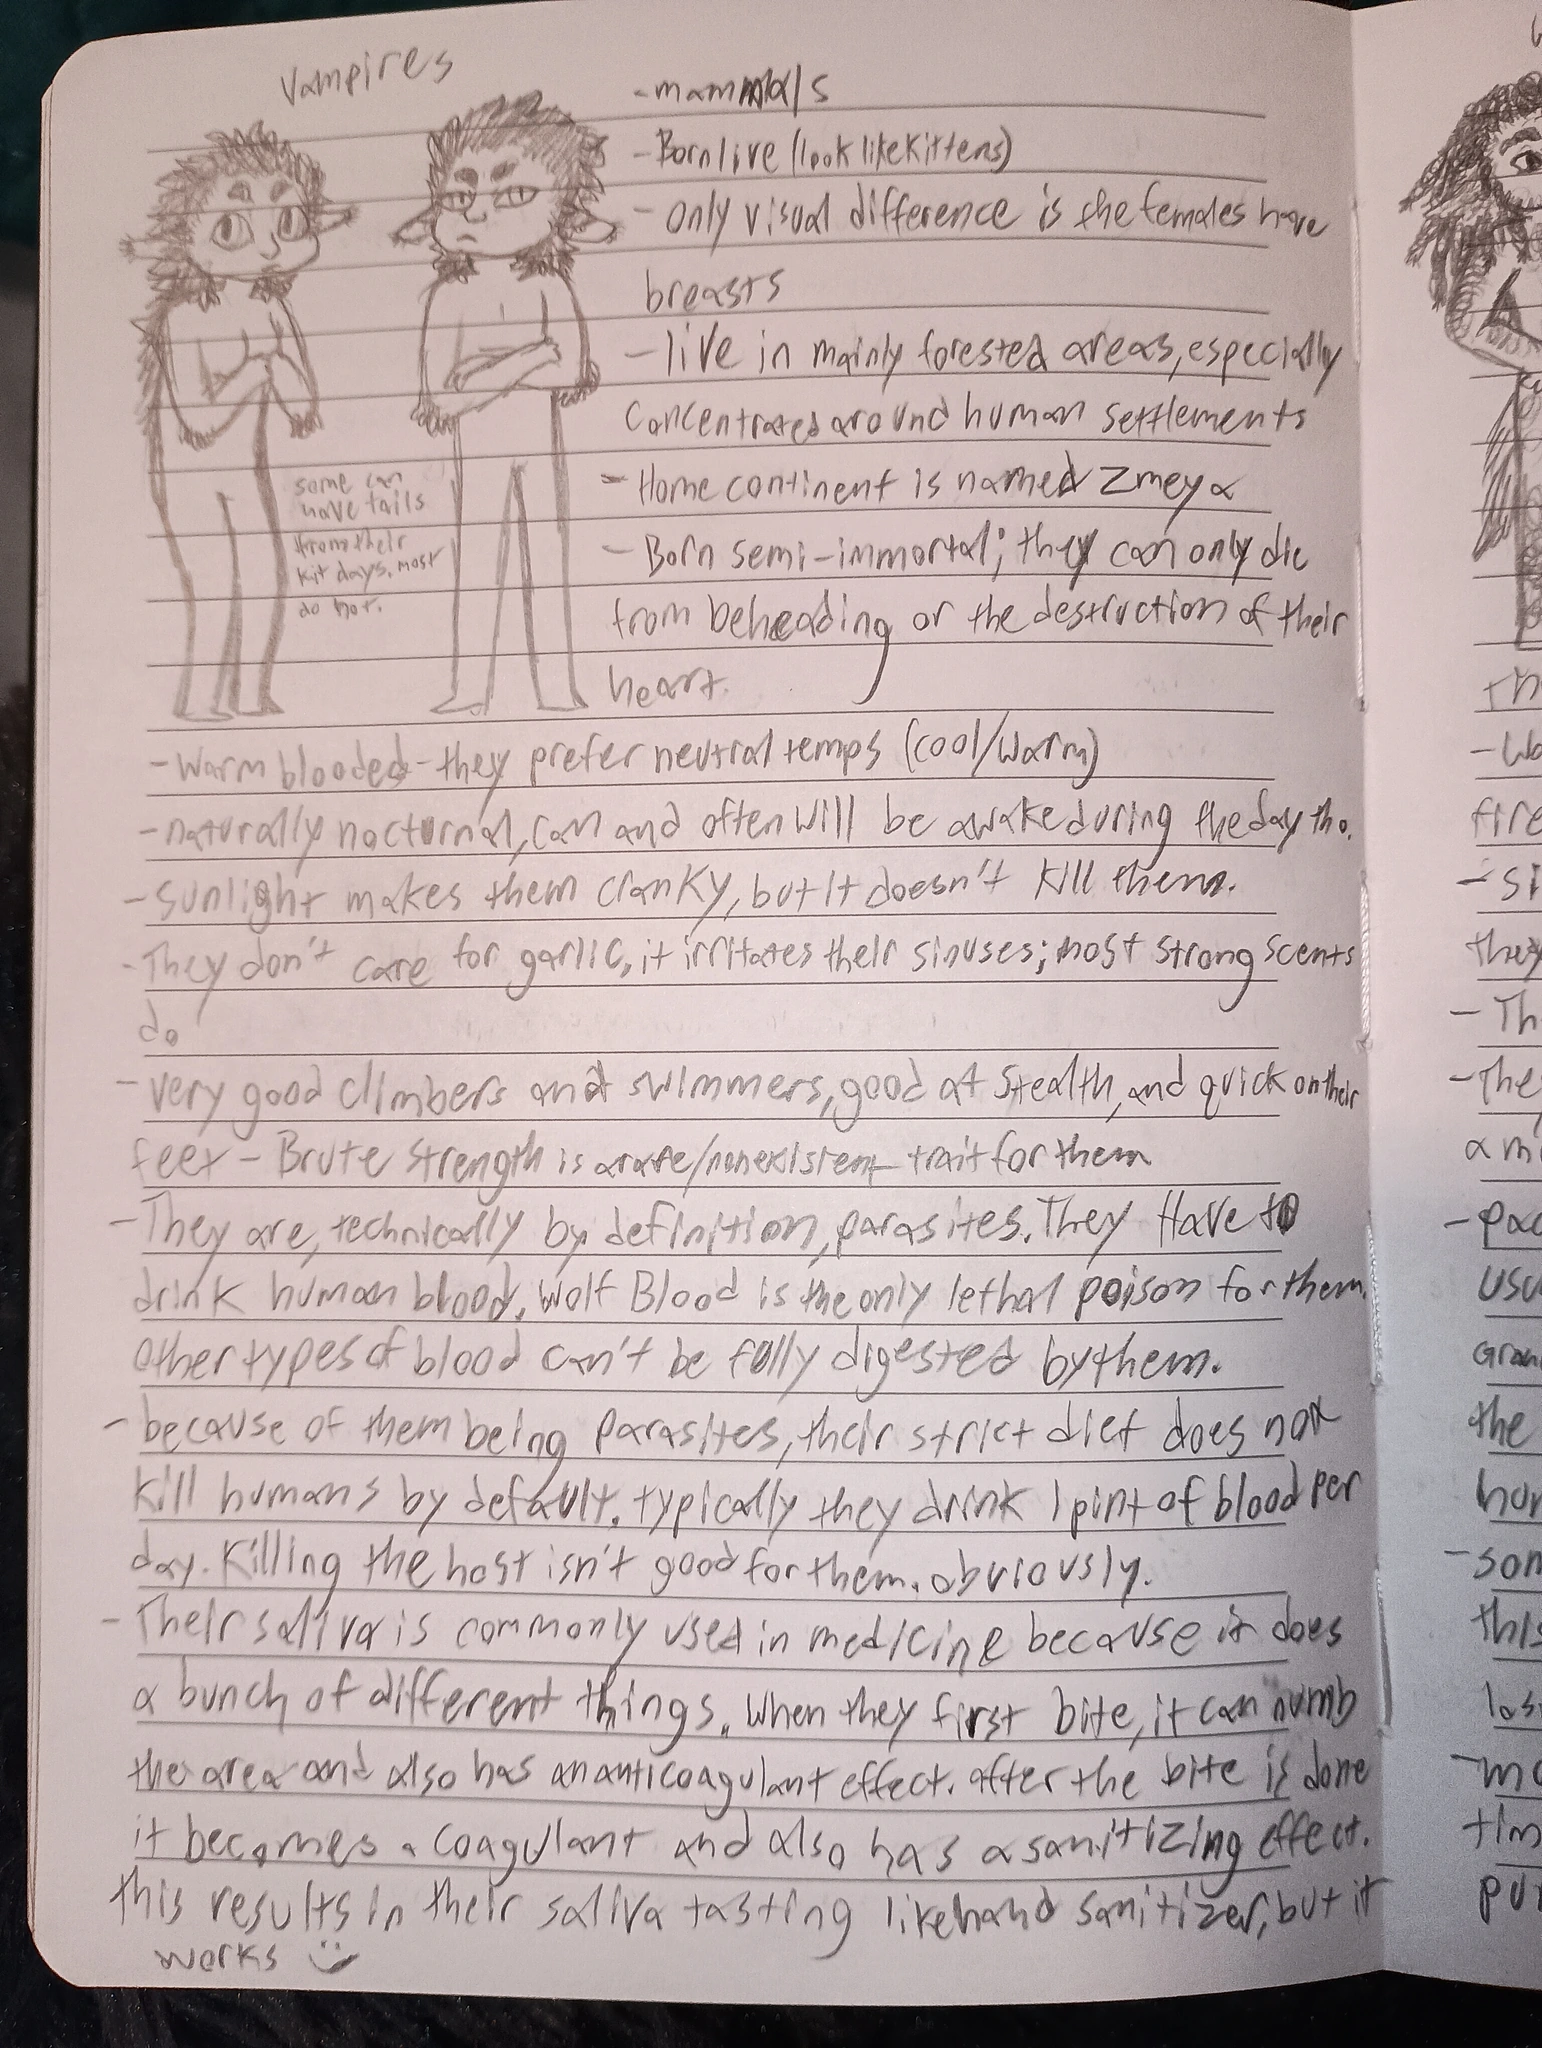 Vampires
-mammals
-Born live (look like kittens)
- only visual difference is the females have
breasts
- live in mainly forested areas, especially
concentrated around human settlements
- Home continent is named Zmeya
- Born semi-immortal; they can only die
from beheading or the destruction of their
heart.
some can
have tails
from their
kit days. most
do not.
-Warm blooded - they prefer neutral temps (cool/warm)
-naturally nocturnal, can and often will be awake during the day tho.
- sunlight makes them cranky, but it doesn't kill them.
- They don't care for garlic, it irritates their sinuses; most strong scents
do
- very good climbers and swimmers, good at stealth, and quick on their
feet - Brute strength is a rare/nonexistent trait for them
- They are, technically by definition, parasites. They Have to
drink human blood. Wolf Blood is the only lethal poison for them.
other types of blood can't be fully digested by them.
- because of them being parasites, their strict diet does not
kill humans by default. typically they drink 1 pint of blood per
day. Killing the host isn't good for them. obviously.
- Their saliva is commonly used in medicine because it does
a bunch of different things. When they first bite, it can numb
the area and also has an anticoagulant effect. after the bite is done
it becomes a coagulant and also has a sanitizing effect.
this results in their saliva tasting like hand sanitizer, but it
works :)
th
- Wa
fire
- si
they
- Th
- The
a m
- pac
usu
Gran
the
hun
- som
this
las
- mo
tim
pu